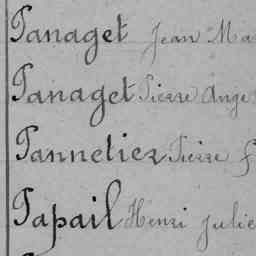 Panaget Jean Ma
Panaget Pierre Ange
Pannetier Pierre f
Papail Henri Julie